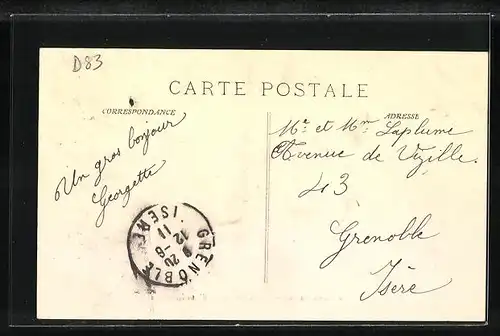 D83
CARTE POSTALE
CORRESPONDANCE
ADRESSE
Un gros bonjour
Georgette
Mr et Mme Laplume
Avenue de Vizille
43
Grenoble
Isère
GRENOBLE
9 20
12 - 6
11
ISERE